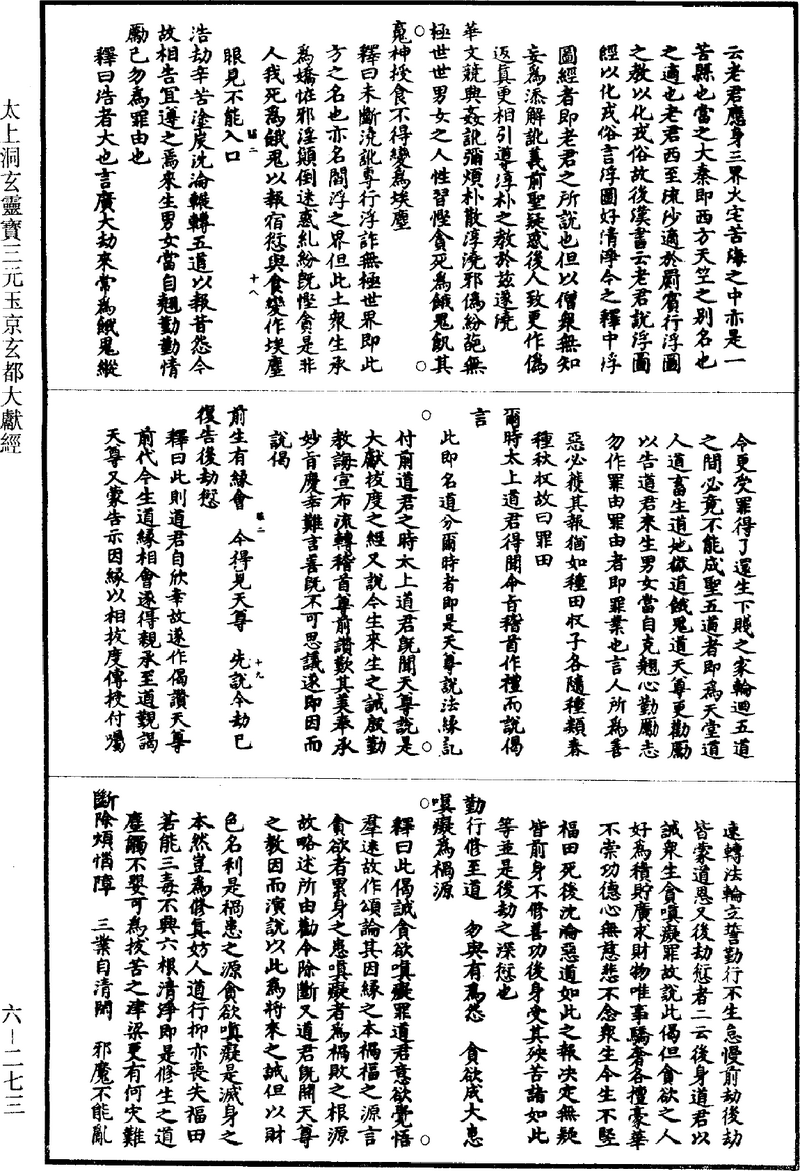 云老君應身三界火宅苦海之中亦是一
苦縣也當之大秦即西方天竺之別名也
之適也老君西至流沙適於罽賓行浮圖
之教以化戎俗故後漢書云老君說浮圖
經以化戎俗言浮圖好清淨今之釋中浮
圖經者即老君之所說也但以僧衆無知
妄為添解訛義前聖疑惑後人致更作偽
返真更相引導淳朴之教於茲遂澆
華文競興姦訛彌煩朴散淳澆邪偽紛詭無
極世世男女之人性習慳貪死為餓鬼飢其
䰟神授食不得變為埃塵
釋曰未斷澆訛專行浮詐無極世界即此
方之名也亦名閻浮之界但此土衆生承
為嬌恠邪淫顛倒迷惑糺紛既慳貪是非
人我死為餓鬼以報宿愆與食變作埃塵
眼見不能入口
浩劫辛苦塗炭沈淪輾轉五道以報昔怨今
故相告宜遵之焉來生男女當自翹勤勤情
勵已勿為罪由也
釋曰浩者大也言廣大劫來常為餓鬼縱
今更受罪得了還生下賤之家輪迴五道
之間必竟不能成聖五道者即為天堂道
人道畜生道地獄道餓鬼道天尊更勸勵
以告道君來生男女當自克翹心勤勵志
勿作罪由罪由者即罪業也言人所為善
惡必獲其報猶如種田収子各隨種類春
種秋収故曰罪田
爾時太上道君得聞命旨稽首作禮而說偈
言
此即名道分爾時者即是天尊說法緣記
付前道君之時太上道君既聞天尊說是
大獻拔度之經又說今生來生之誡慇勤
教誨宣布流轉稽首尊前讚歎其美奉承
妙旨慶幸難言喜既不可思議遂即因而
說偈
前生有緣會　今得見天尊　先說今劫已
復告後劫愆
釋曰此則道君自欣幸故遂作偈讚天尊
前代今生道緣相會遂得親承至道觀謁
天尊又蒙告示因緣以相拔度傳授付囑
速轉法輪立誓勤行不生怠慢前劫後劫
皆蒙道恩又後劫愆者二云後身道君以
誡衆生貪嗔癡罪故說此偈但貪欲之人
好為積貯廣求財物唯事驕奢各擅豪華
不崇功德心無慈悲不念衆生今生不堅
福田死後沈淪惡道如此之報決定無疑
皆前身不修善功後身受其殃苦諸如此
等並是後劫之深愆也
勤行修至道　勿與有為怨　貪欲成大患
嗔癡為禍源
釋曰此偈誡貪欲嗔癡罪道君意欲覺悟
羣迷故作頌論其因緣之本禍福之源言
貪欲者累身之患嗔癡者為禍敗之根源
故略述所由勸令除斷又道君既聞天尊
之教因而演說以此為將來之誡但以財
色名利是禍患之源貪欲嗔癡是滅身之
本然豈為修真妨人道行抑亦喪失福田
若能三毒不興六根清淨即是修生之道
塵觸不嬰可為拔苦之津梁更有何灾難
斷除煩惱障　三業自清閑　邪魔不能亂
太上洞玄靈寶三元玉京玄都大獻經
六－二七三